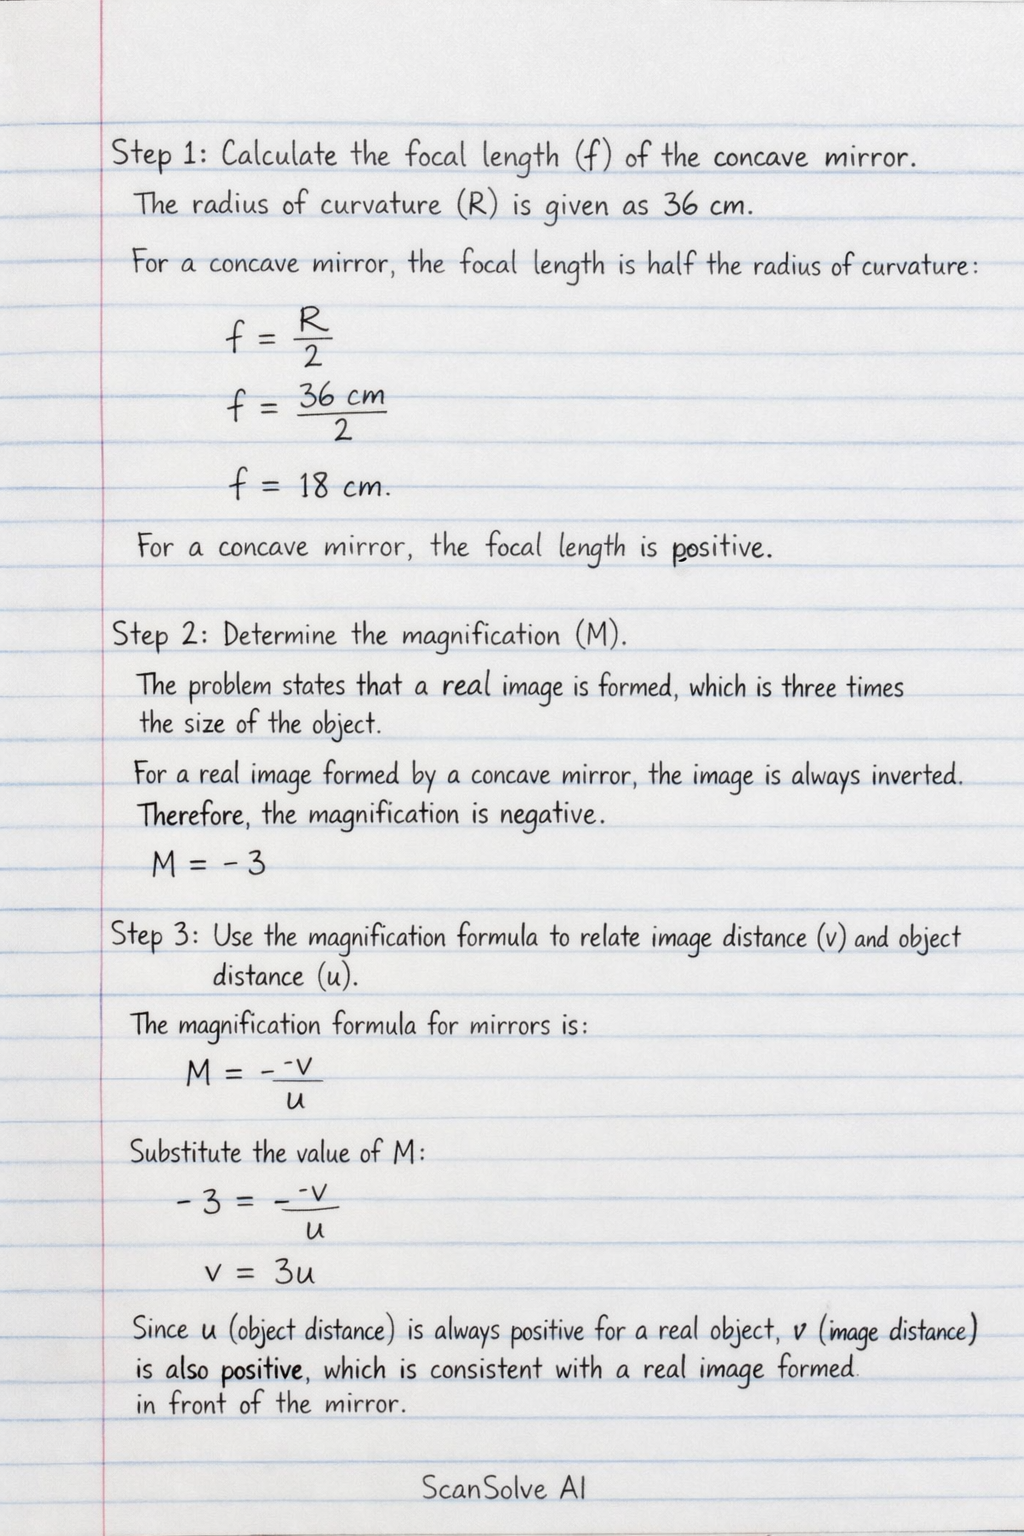 Step 1: Calculate the focal length (f) of the concave mirror.
The radius of curvature (R) is given as 36 cm.
For a concave mirror, the focal length is half the radius of curvature:
f = R/2
f = 36 cm/2
f = 18 cm.
For a concave mirror, the focal length is positive.
Step 2: Determine the magnification (M).
The problem states that a real image is formed, which is three times
the size of the object.
For a real image formed by a concave mirror, the image is always inverted.
Therefore, the magnification is negative.
M = - 3
Step 3: Use the magnification formula to relate image distance (v) and object
distance (u).
The magnification formula for mirrors is:
M = - -v/u
Substitute the value of M:
- 3 = - -v/u
v = 3u
Since u (object distance) is always positive for a real object, v (image distance)
is also positive, which is consistent with a real image formed.
in front of the mirror.
ScanSolve AI